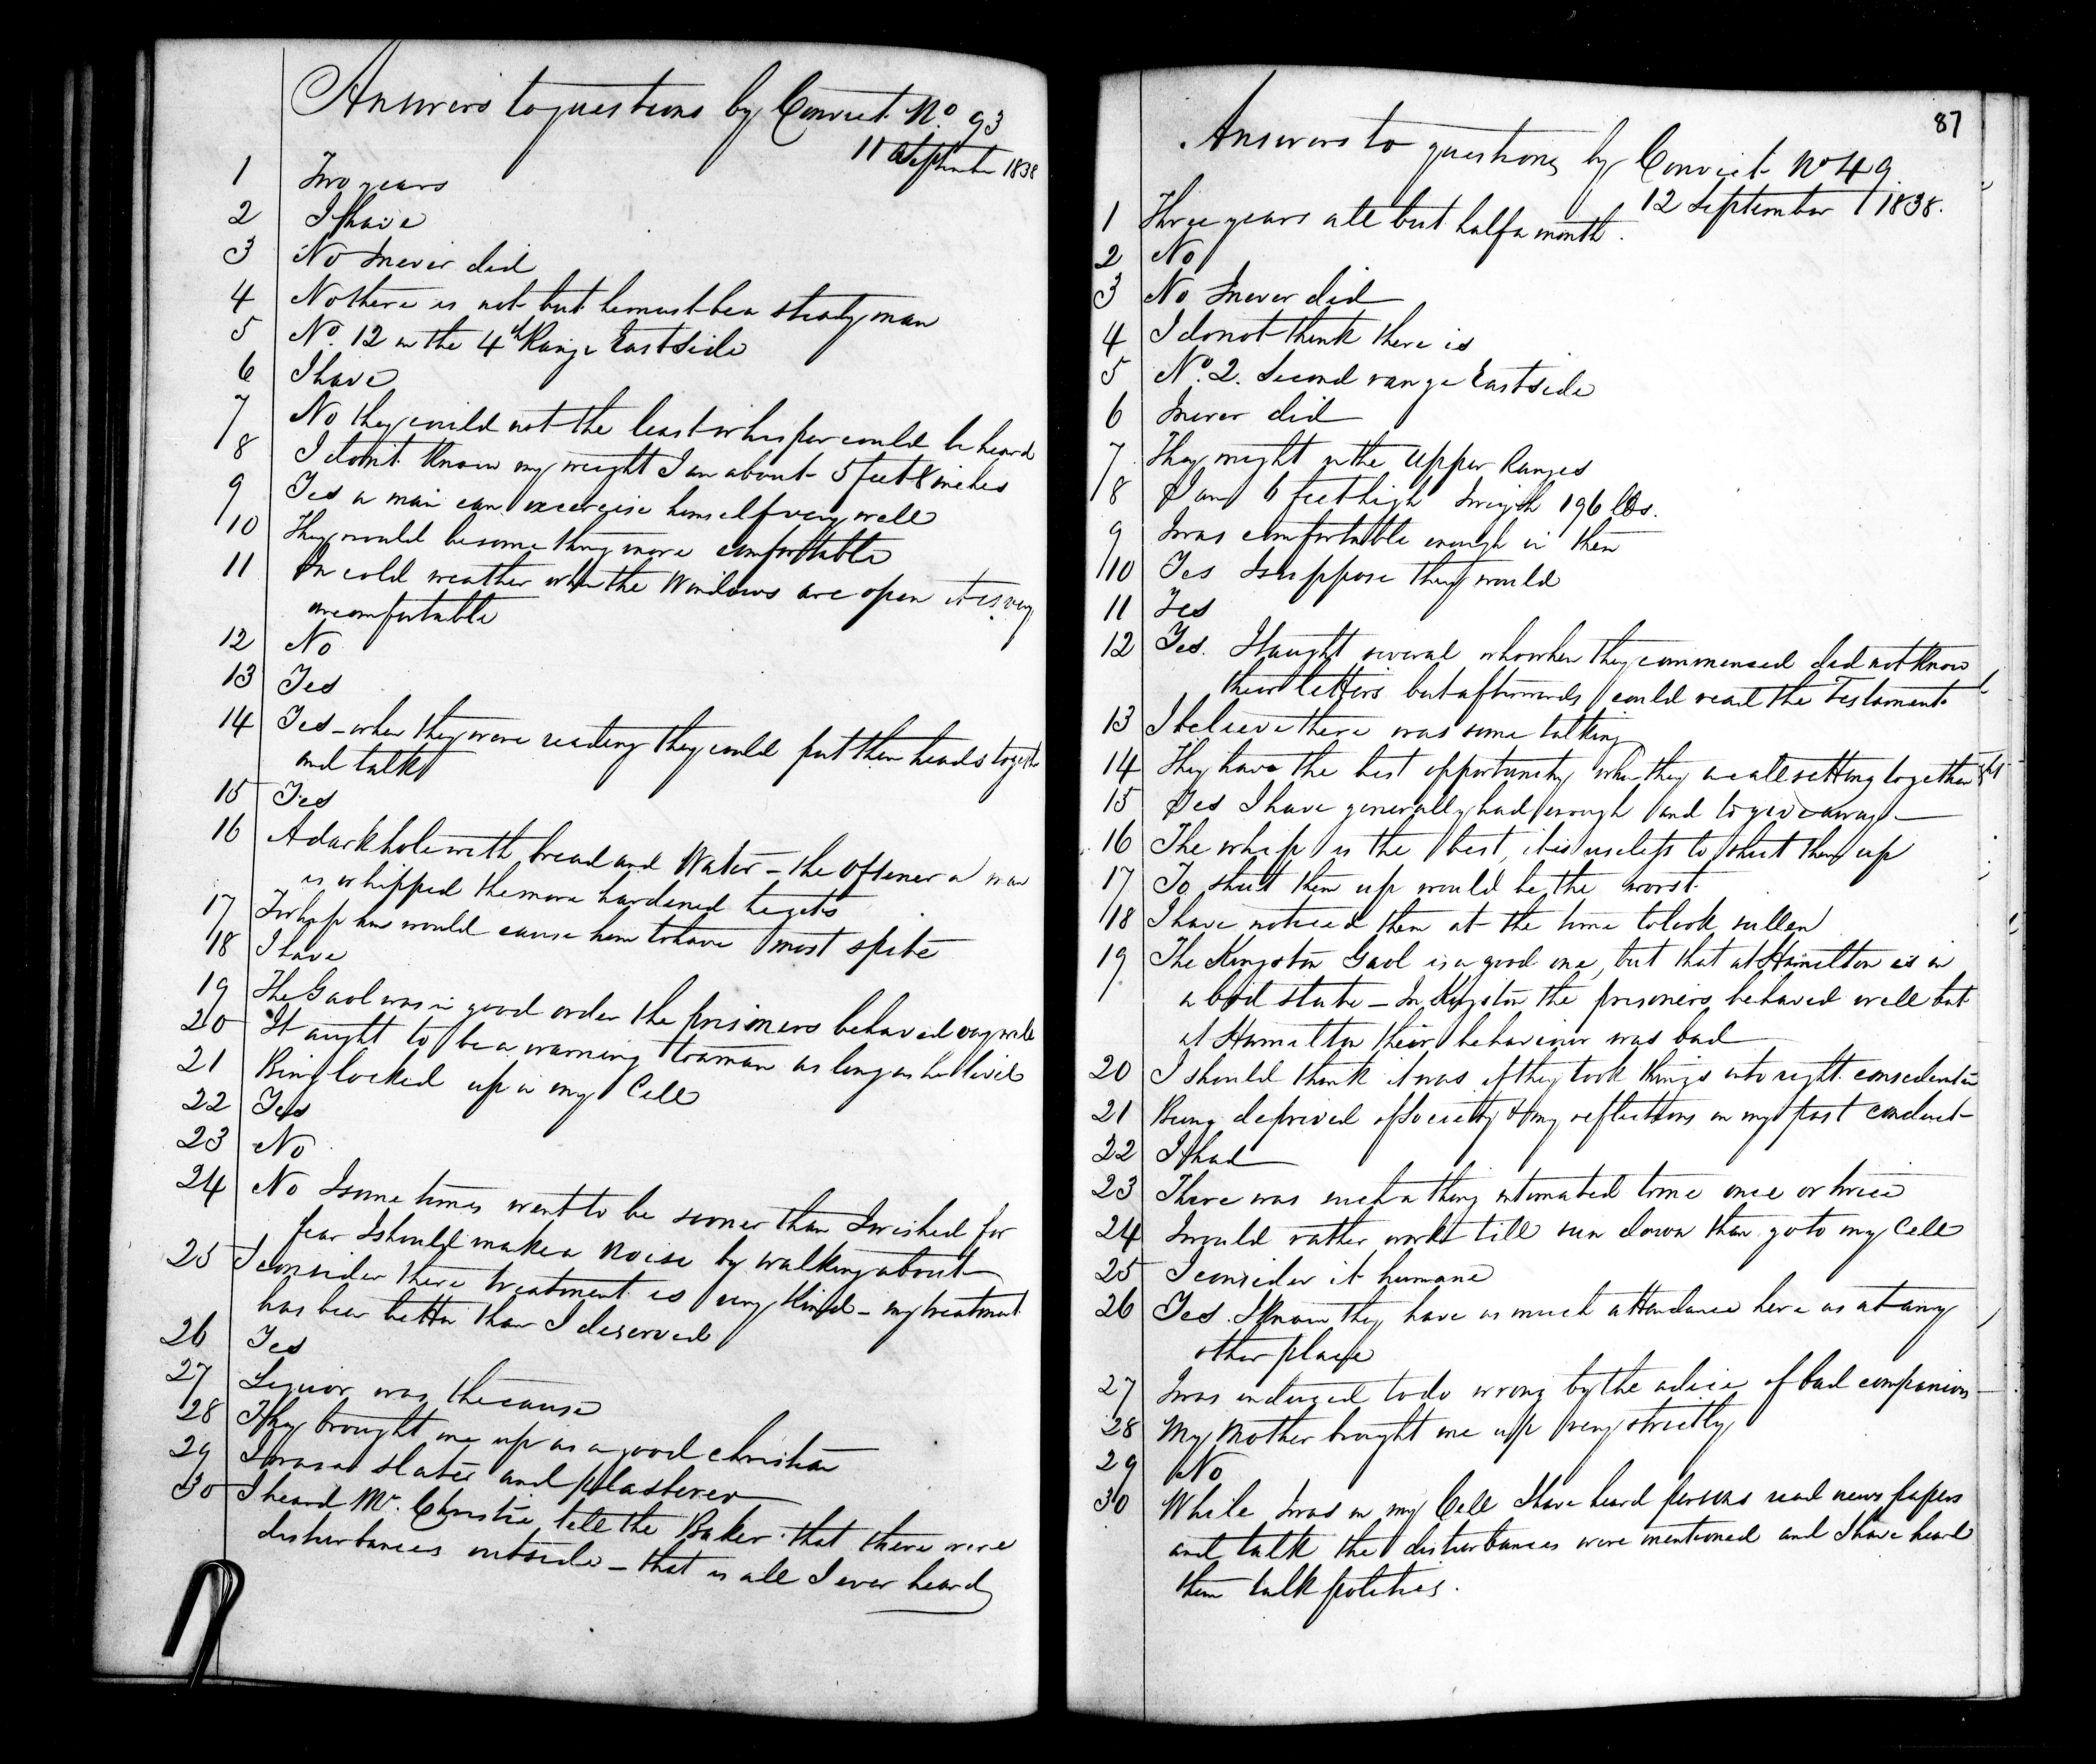 Answers to questions by Convict No. 93
11 September 1838
1 Two years
2 I have
3 No I never did
4 No there is not but he must be a steady man
5 No. 12 in the 4th Range East side
6 I have
7 No they could not the least whisper could be heard
8 I don't know my weight I am about 5 feet 8 inches
9 Yes a man can excercise himself very well
10 They would be some thing more comfortable
11 In cold weather when the Windows are open it is very
uncomfortable
12 No
13 Yes
14 Yes - when they were reading they could put their heads together
and talk
15 Yes
16 A dark hole with bread and Water - the oftener a man
is whipped the more hardened he gets
17 To whip him would cause him to have most spite
18 I have
19 The Gaol was in good order the prisoners behaved very well
20 It aught to be a warning to a man as long as he lived
21 Being locked up in my Cell
22 Yes
23 No
24 No I some times went to be sooner than I wished for
fear I should make a noise by walking about
25 I consider there treatment is very kind - my treatment
has been better than I deserved
26 Yes
27 Liquor was the cause
28 They brought me up as a good christian
29 I was a slater and plasterer
30 I heard Mr. Christie tell the Baker that there were
disturbances outside - that is all I ever heard
87
Answers to questions by Convict No 49
12 September 1838.
1 Three years all but half a month.
2 No
3 No I never did
4 I do not think there is
5 No. 2. Second range East side
6 I never did
7 They might in the Upper Ranges
8 I am 6 feet high I weigh 196 lbs.
9 I was comfortable enough in them
10 Yes I suppose they would
11 Yes
12 Yes. I taught several who when they commenced did not know
their letters but afterwards could read the Testament
13 I believe there was some talking
14 They have the best opportunity when they are all setting together
15 Yes I have generally had enough and to give away -
16 The whip is the best, it is useless to shut them up
17 To shut them up would be the worst.
18 I have noticed them at the time to look sullen
19 The Kingston Gaol is a good one, but that at Hamilton is in
a bad state - In Kingston the prisoners behaved well but
at Hamilton their behaviour was bad
20 I should think it was if they took things into right consideration
21 Being deprived of Society & my reflections on my past conduct
22 I had
23 There was such a thing intimated to me once or twice
24 I would rather work till sun down than go to my Cell
25 I consider it humane
26 Yes. I know they have as much attendance here as at any
other place
27 I was induced to do wrong by the advice of bad companions
28 My Mother brought me up very strictly
29 No
30 While I was in my Cell I have heard persons read news papers
and talk the disturbances were mentioned and I have heard
them talk politics.